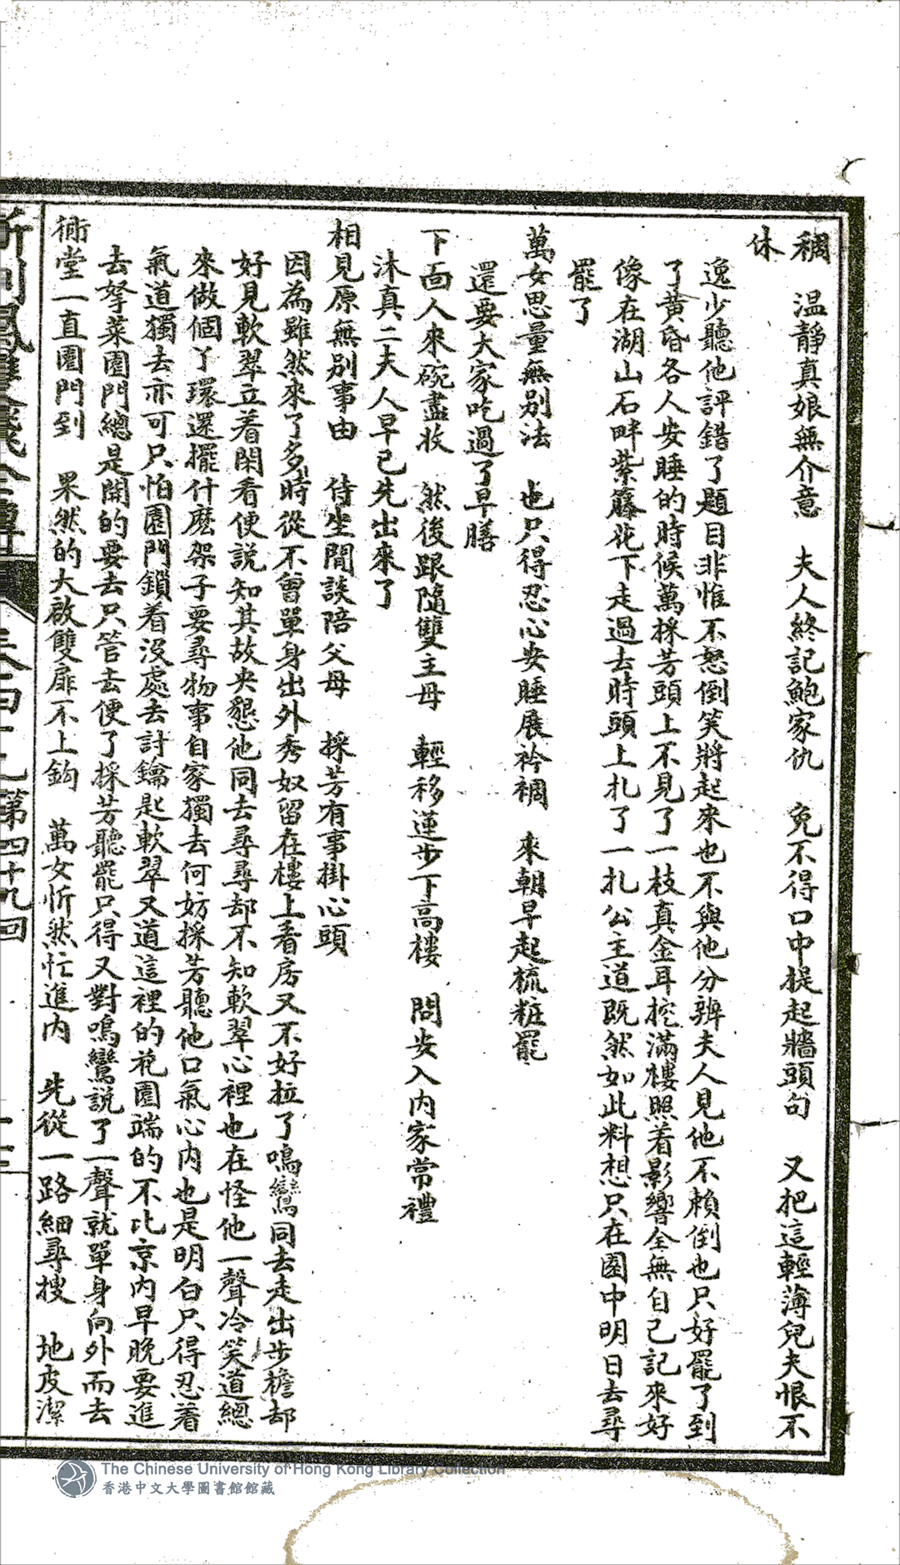 稠　温靜真娘無介意　夫人終記鮑家仇　免不得口中提起牆頭句　又把這輕薄兒夫恨不
休
逸少聽他評錯了題目非惟不怒倒笑將起來也不與他分辨夫人見他不賴倒也只好罷了到
了黃昏各人安睡的時候萬採芳頭上不見了一枝真金耳挖滿樓照着影響全無自己記來好
像在湖山石畔紫籐花下走過去時頭上扎了一扎公主道既然如此料想只在園中明日去尋
罷了
萬女思量無別法　也只得忍心安睡展衿裯　來朝早起梳粧罷
還要大家吃過了早膳
下面人來碗盡收　然後跟隨雙主母　輕移蓮步下高樓　問安入內家常禮
沐真二夫人早已先出來了
相見原無別事由　侍坐閒談陪父母　採芳有事掛心頭
因為雖然來了多時從不曾單身出外秀奴留在樓上看房又不好拉了鳴鸞同去走出步檐却
好見軟翠立着閑看便説知其故央懇他同去尋尋却不知軟翠心裡也在怪他一聲冷笑道總
來做個丫環還擺什麼架子要尋物事自家獨去何妨採芳聽他口氣心內也是明白只得忍着
氣道獨去亦可只怕園門鎖着沒處去討鑰匙軟翠又道這裡的花園端的不比京內早晚要進
去拏菜園門總是開的要去只管去便了採芳聽罷只得又對鳴鸞説了一聲就單身向外而去
衖堂一直園門到　果然的大啟雙扉不上鈎　萬女忻然忙進內　先從一路細尋搜　地皮潔
第四十九回
The Chinese University of Hong Kong Library Collection
香港中文大學圖書館館藏